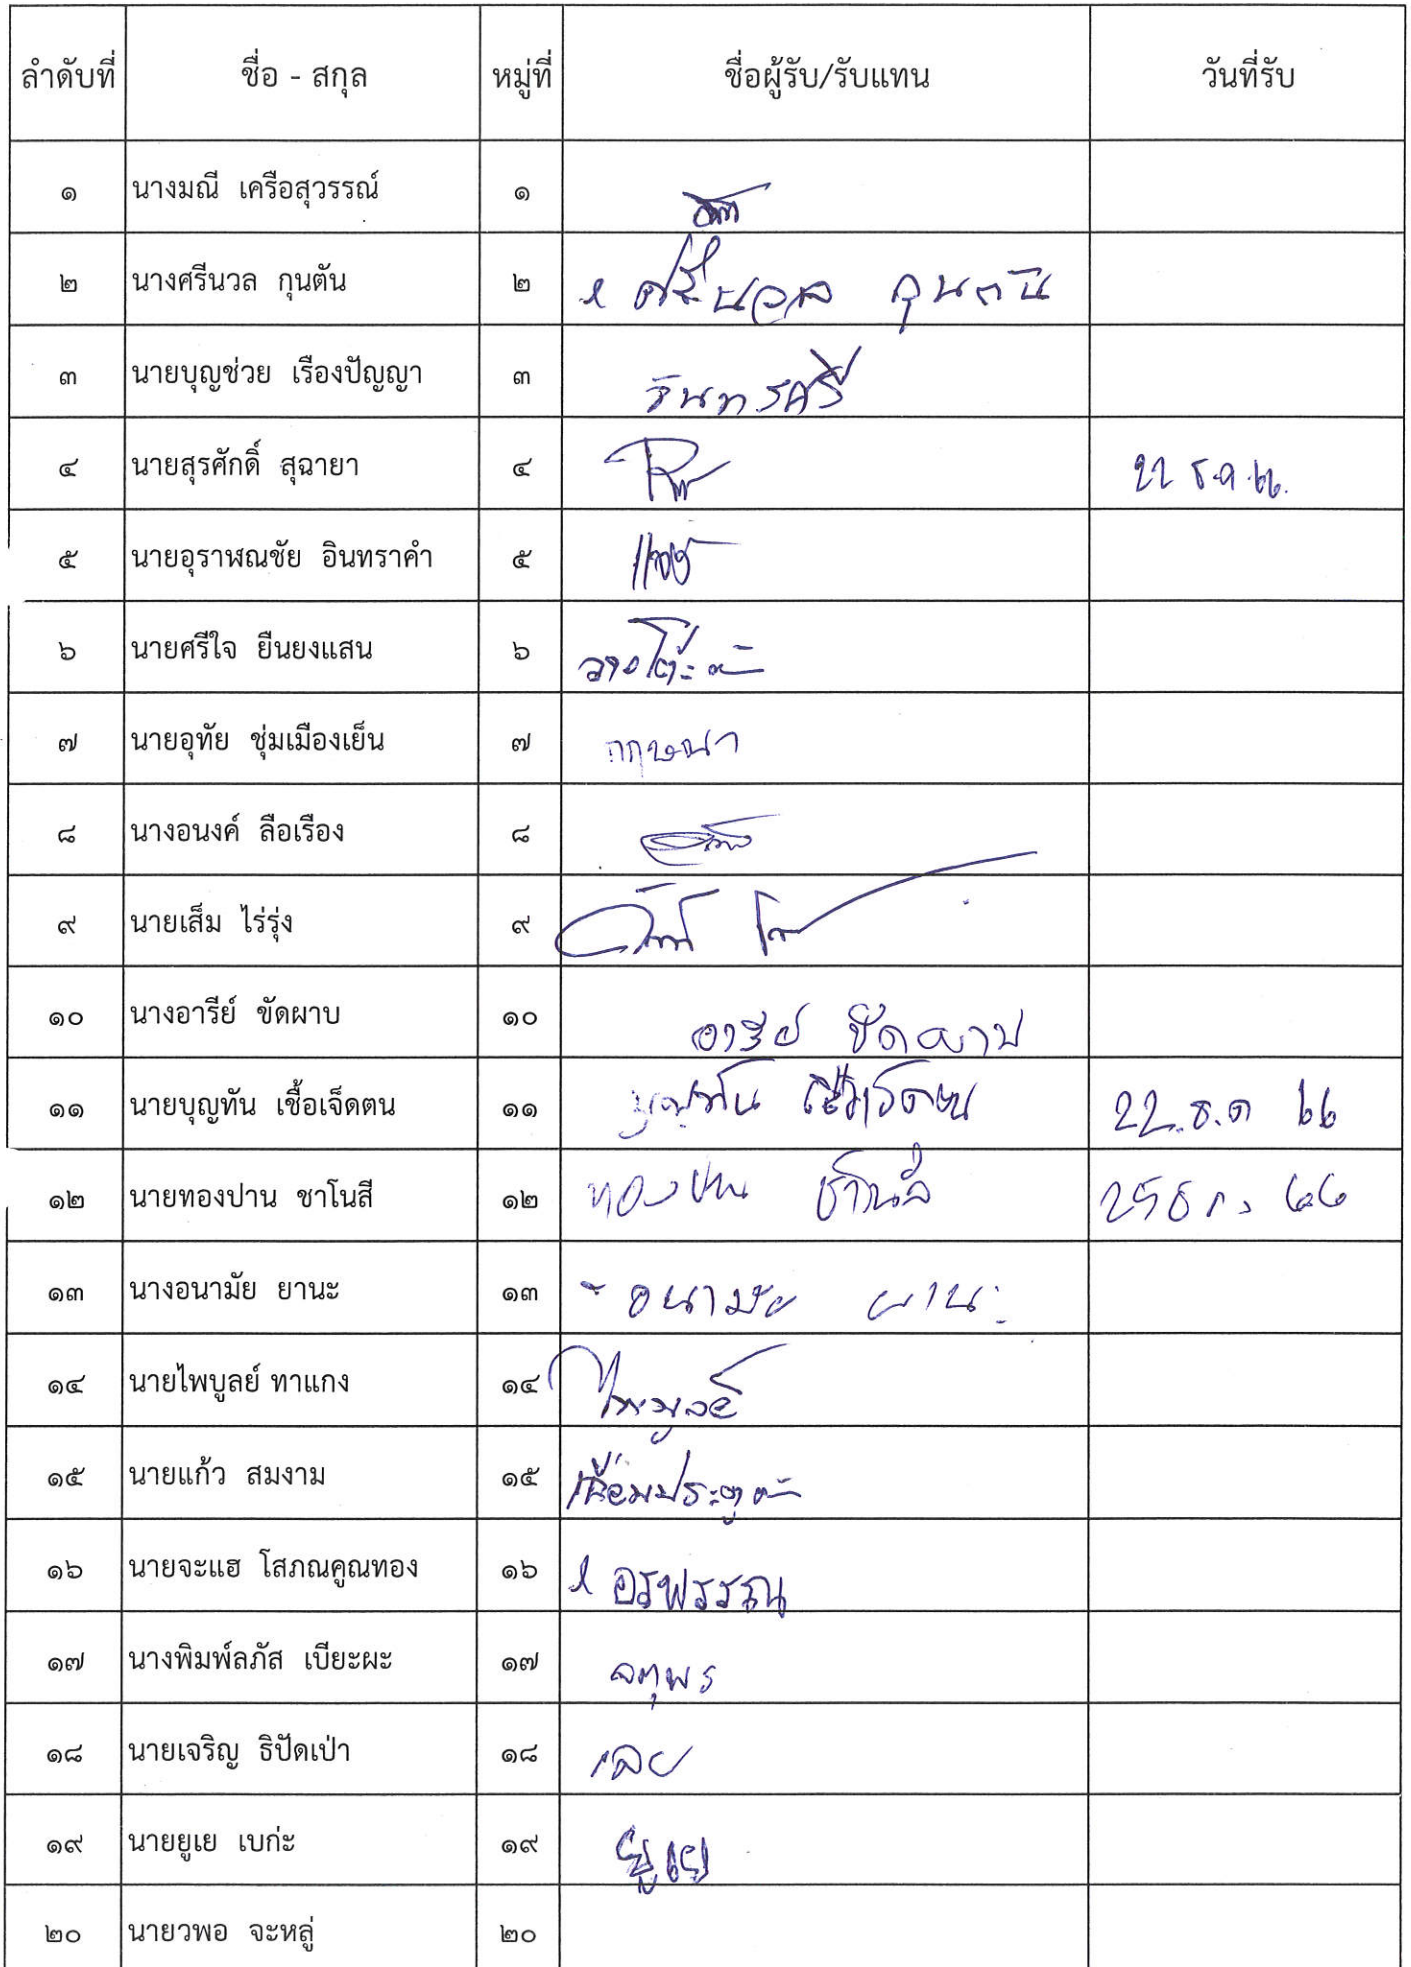 ลำดับที่ ชื่อ - สกุล หมู่ที่ ชื่อผู้รับ/รับแทน วันที่รับ
๑ นางมณี เครือสุวรรณ์ ๑
๒ นางศรีนวล กุนตัน ๒ ศรีนวล กุนตัน
๓ นายบุญช่วย เรืองปัญญา ๓ จันทรศรี
๔ นายสุรศักดิ์ สุฉายา ๔ 22 ธ.ค. ๖๖.
๕ นายอุราพณชัย อินทราคำ ๕
๖ นายศรีใจ ยืนยงแสน ๖ วางโต๊ะ
๗ นายอุทัย ชุ่มเมืองเย็น ๗ กฤษณา
๘ นางอนงค์ ลือเรือง ๘
๙ นายเส็ม ไร่รุ่ง ๙
๑๐ นางอารีย์ ขัดผาบ ๑๐ อารีย์ ขัดผาบ
๑๑ นายบุญทัน เชื้อเจ็ดตน ๑๑ บุญทัน เชื้อเจ็ดตน 22 ธ.ค ๖๖
๑๒ นายทองปาน ชาโนสี ๑๒ ทองปาน ชาโนสี
๑๓ นางอนามัย ยานะ ๑๓ อนามัย ยานะ
๑๔ นายไพบูลย์ ทาแกง ๑๔ ไพบูลย์
๑๕ นายแก้ว สมงาม ๑๕
๑๖ นายจะแฮ โสภณคูณทอง ๑๖ อรพรรณ
๑๗ นางพิมพ์ลภัส เบียะผะ ๑๗ จตุพร
๑๘ นายเจริญ ธิปัดเป่า ๑๘
๑๙ นายยูเย เบก่ะ ๑๙ ยูเย
๒๐ นายวพอ จะหลู่ ๒๐